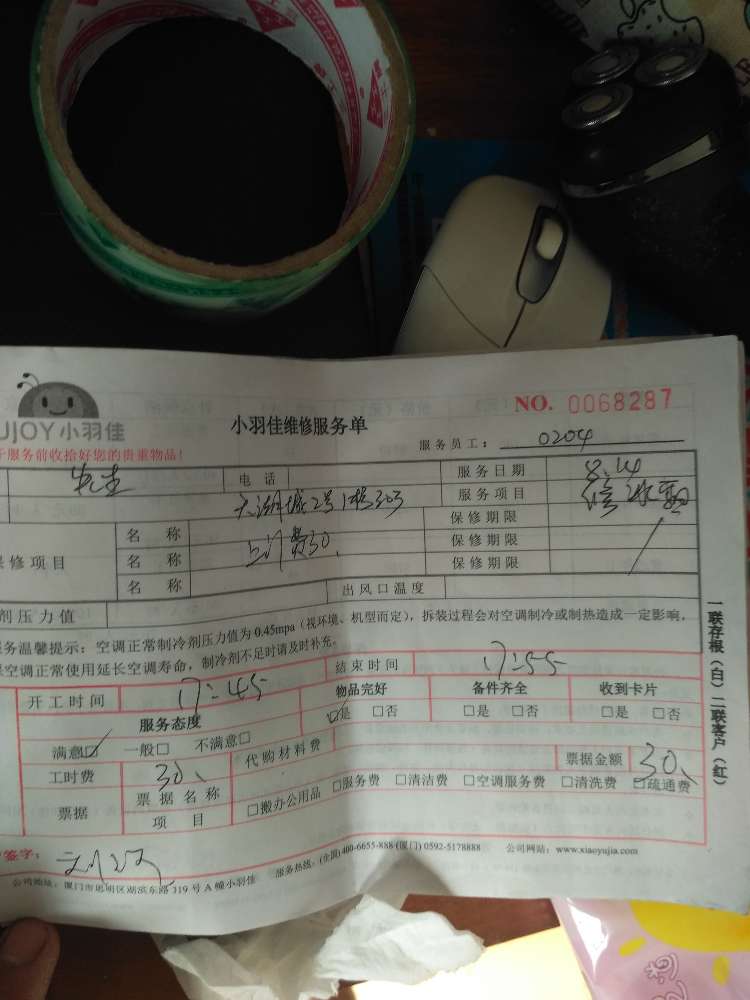 UJOY小羽佳
小羽佳维修服务单
NO. 0068287
服务前收拾好您的贵重物品!
服务员工: 0204
电话
服务日期 8.14
服务项目
保修项目
名 称 上门费30、
保修期限
名 称
保修期限
名 称
保修期限
出风口温度
剂压力值
务温馨提示:空调正常制冷剂压力值为0.45mpa(视环境、机型而定),拆装过程会对空调制冷或制热造成一定影响,
空调正常使用延长空调寿命,制冷剂不足时请及时补充。
开工时间 17:45
结束时间 17:55
服务态度
物品完好
备件齐全
收到卡片
满意☑ 一般□ 不满意□
☑是 □否
□是 □否
□是 □否
工时费 30、
代购材料费
票据金额 30、
票据
票据名称
项 目
□搬办公用品 □服务费 □清洁费 □空调服务费 □清洗费 □疏通费
签字:
服务热线:(全国)400-6655-888(厦门)0592-5178888 公司网站:www.xiaoyujia.com
公司地址:厦门市思明区湖滨东路319号A幢小羽佳
一联存根(白)二联客户(红)